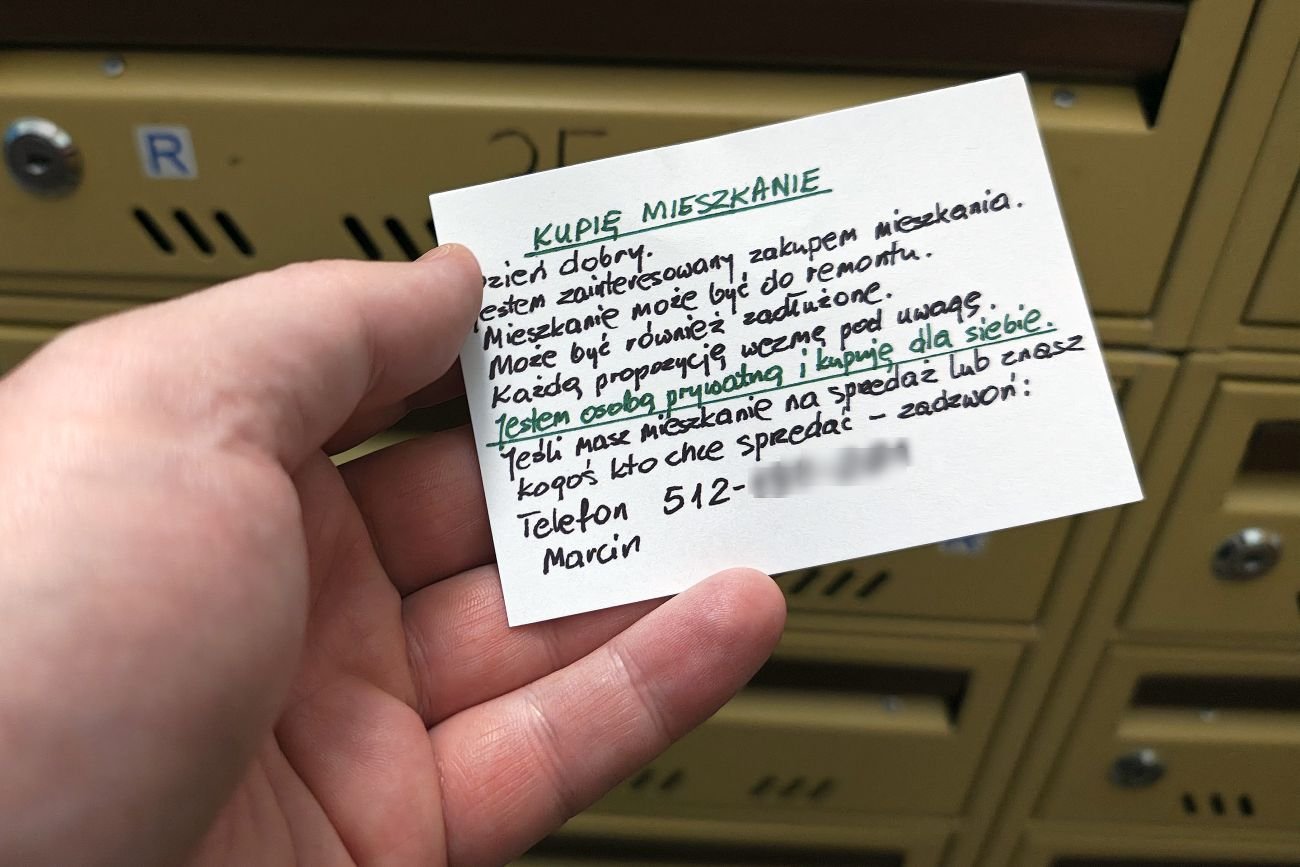 R
25
KUPIĘ MIESZKANIE
Dzień dobry.
Jestem zainteresowany zakupem mieszkania.
Mieszkanie może być do remontu.
Może być również zadłużone.
Każdą propozycję wezmę pod uwagę.
Jestem osobą prywatną i kupuję dla siebie.
Jeśli masz mieszkanie na sprzedaż lub znasz
kogoś kto chce sprzedać – zadzwoń:
Telefon 512-
Marcin